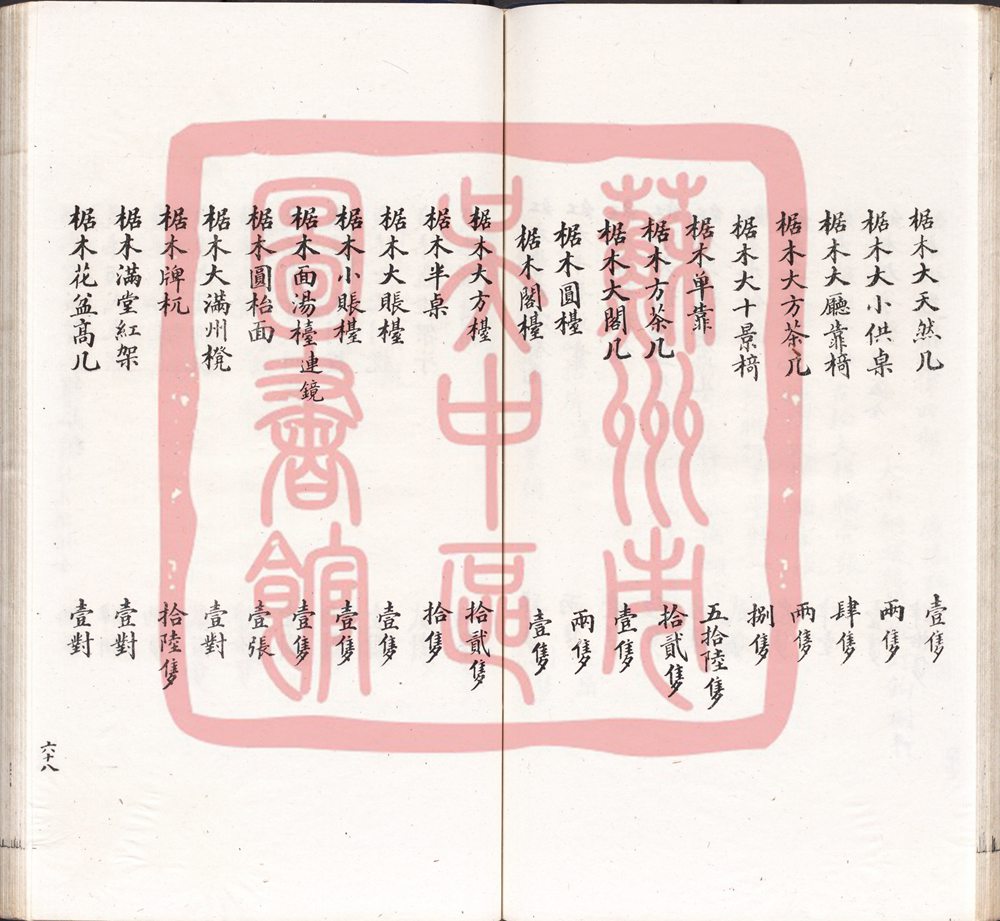 椐木大天然几 壹隻
椐木大小供桌 兩隻
椐木大廳靠椅 肆隻
椐木大方茶几 兩隻
椐木大十景椅 捌隻
椐木单靠 五拾陸隻
椐木方茶几 拾貳隻
椐木大閣几 壹隻
椐木圓檯 兩隻
椐木閣檯 壹隻
椐木大方檯 拾貳隻
椐木半桌 拾隻
椐木大賬檯 壹隻
椐木小賬檯 壹隻
椐木面湯檯連鏡 壹隻
椐木圓枱面 壹張
椐木大滿州櫈 壹對
椐木牌杌 拾陸隻
椐木滿堂紅架 壹對
椐木花盆高几 壹對
六十八
蘇州市
吴中區
圖書館